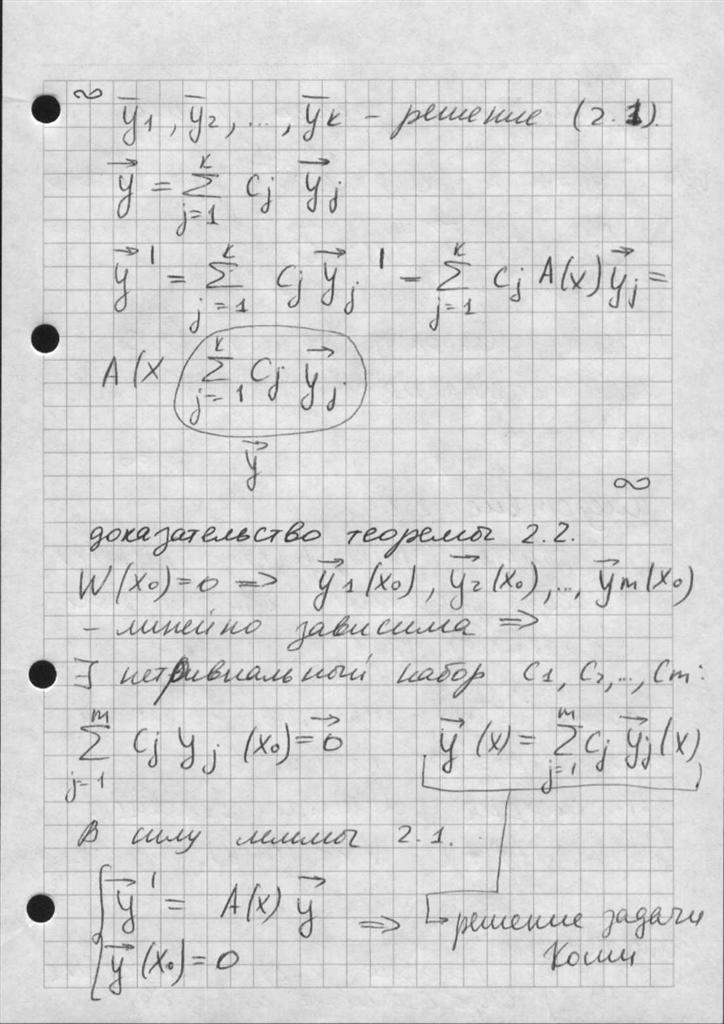 ∞ ȳ₁, ȳ₂, ..., ȳₖ – решение (2.1).
y⃗ = Σ_{j=1}^{k} Cⱼ y⃗ⱼ
y⃗' = Σ_{j=1}^{k} Cⱼ y⃗ⱼ' – Σ_{j=1}^{k} Cⱼ A(x) y⃗ⱼ =
A(x Σ_{j=1}^{k} Cⱼ y⃗ⱼ
y⃗
∞
доказательство теоремы 2.2.
W(x₀)=0 => y⃗₁(x₀), y⃗₂(x₀), ..., y⃗m(x₀)
– линейно зависима =>
∃ нетривиальный набор C₁, C₂, ..., Cm:
Σ_{j=1}^{m} Cⱼ yⱼ (x₀) = 0⃗ y⃗(x) = Σ_{j=1}^{m} Cⱼ y⃗ⱼ(x)
В силу леммы 2.1.
{ y⃗' = A(x) y⃗ => решение задачи
y⃗(x₀) = 0 Коши